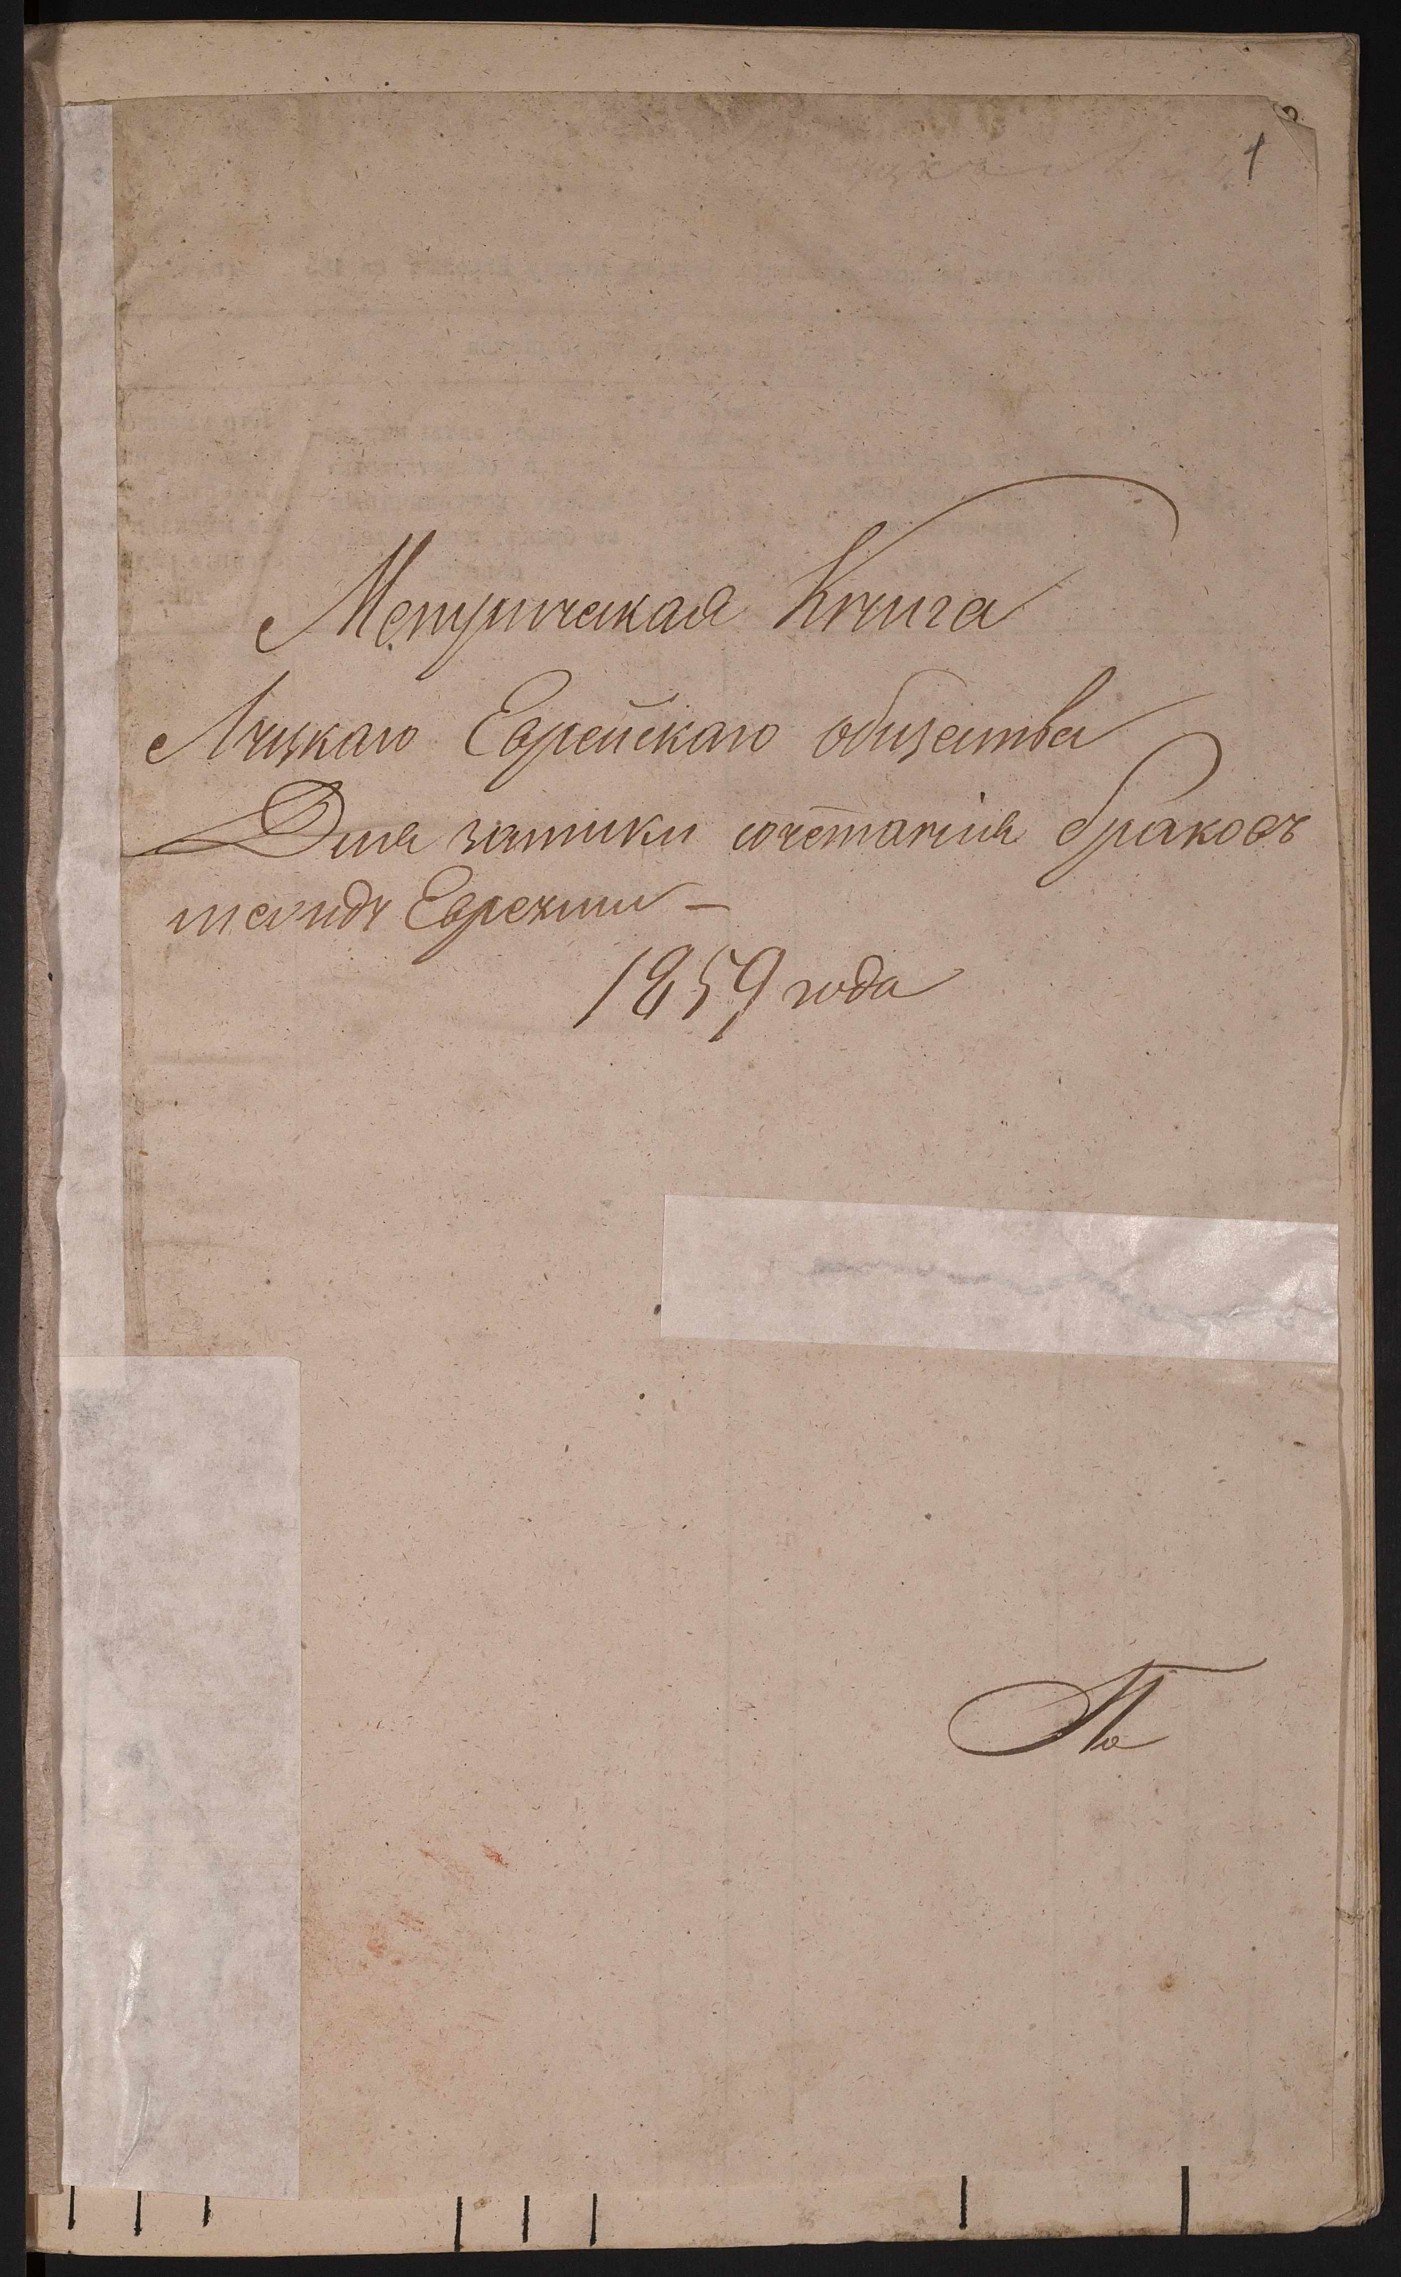 1
Метрическая Книга
Луцкаго Еврейскаго общества
Для записки сочетанія браковъ
между Евреями —
1859 года
По